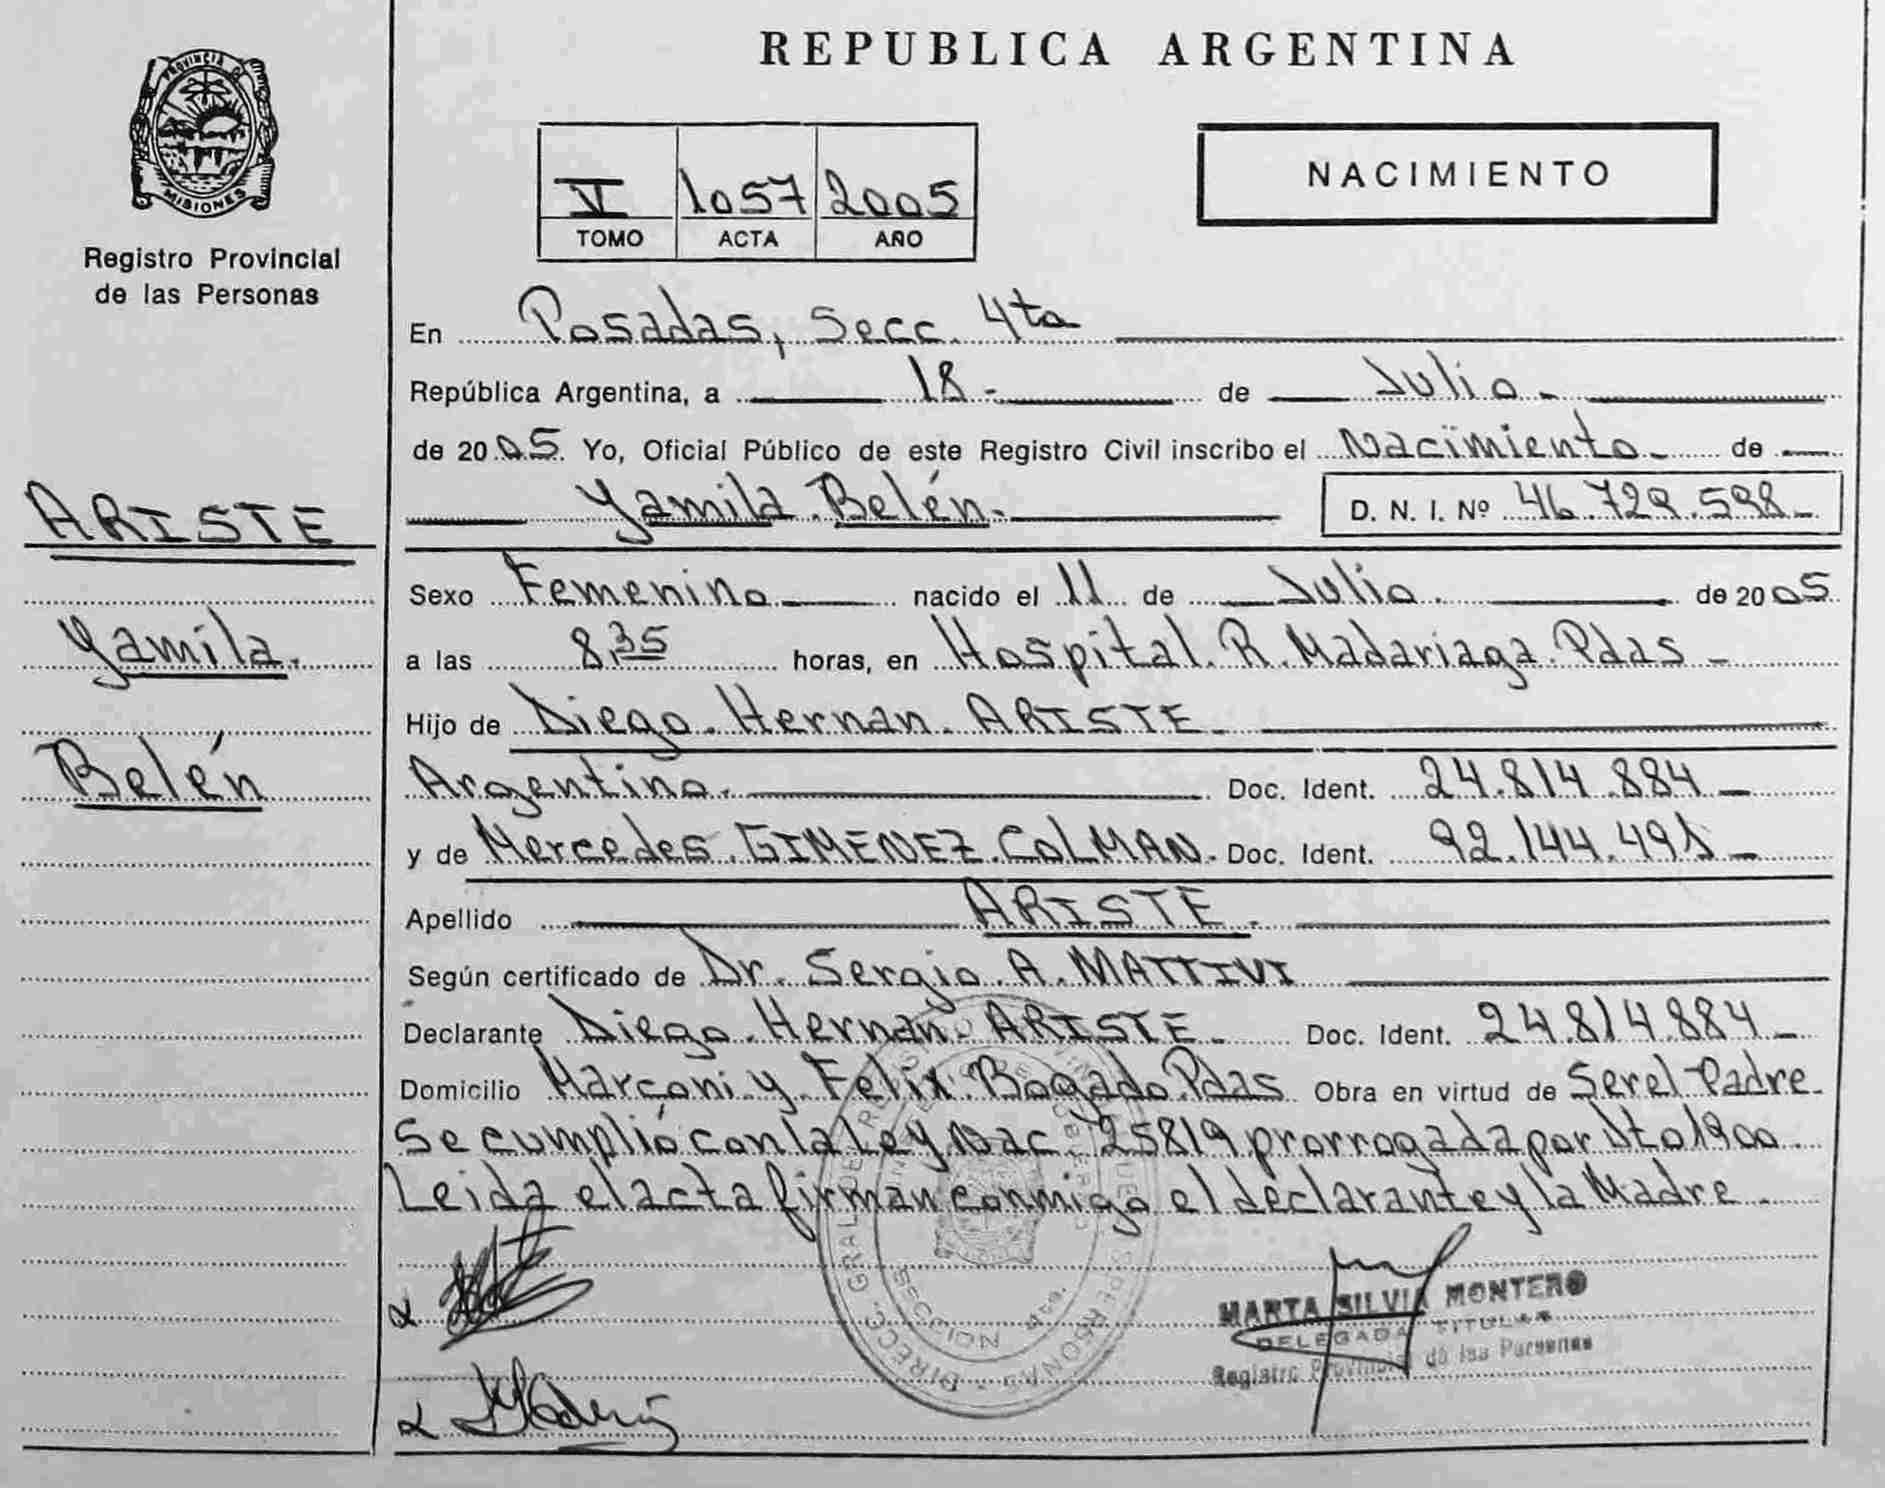 REPUBLICA ARGENTINA
PROVINCIA DE
MISIONES
Registro Provincial
de las Personas
V 1057 2005
TOMO ACTA AÑO
NACIMIENTO
En Posadas, Secc. 4ta
República Argentina, a 18- de Julio-
de 2005 Yo, Oficial Público de este Registro Civil inscribo el Nacimiento- de
Yamila Belén- D. N. I. Nº 46.729.598-
ARISTE
Yamila.
Belén
Sexo Femenino nacido el 11 de Julio. de 2005
a las 8,35 horas, en Hospital. R. Madariaga. Pdas-
Hijo de Diego. Hernan. ARISTE-
Argentino. Doc. Ident. 24.814.884-
y de Mercedes. GIMENEZ. COLMAN. Doc. Ident. 92.144.491-
Apellido ARISTE.
Según certificado de Dr. Sergio. A. MATTIVI
Declarante Diego. Hernan. ARISTE- Doc. Ident. 24.814.884-
Domicilio Marconi y Felix Bogado Pdas Obra en virtud de Ser el Padre-
Se cumplió con la Ley Nac. 25819 prorrogada por Dto 1900.
Leida el acta firman conmigo el declarante y la Madre-
SECCION 4ta.
MARTA SILVIA MONTERO
DELEGADA TITULAR
Registro Provincial de las Personas